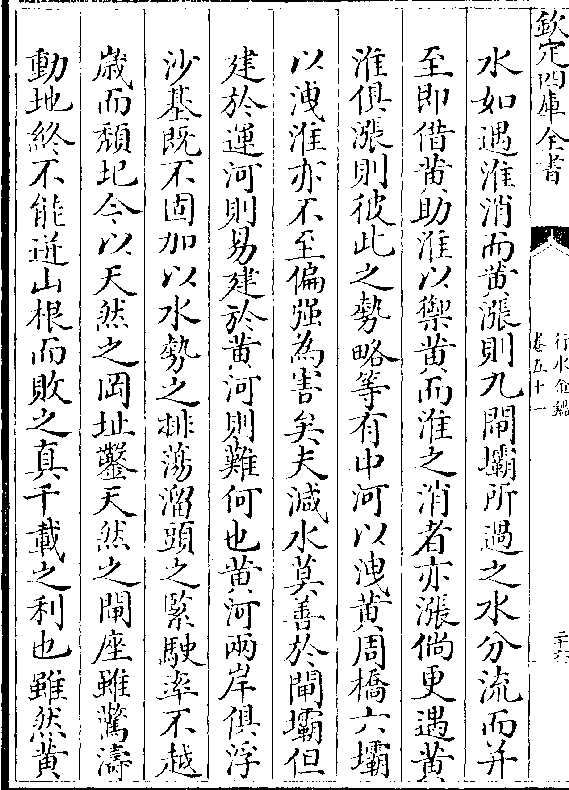 欽定四庫全書
行水金鑑
卷五十一
水如遇淮消而黄漲則九閘壩所過之水分流而并
至即借黄助淮以禦黄而淮之消者亦漲倘更遇黄
淮俱漲則彼此之勢略等有中河以洩黄周橋六壩
以洩淮亦不至偏强為害矣夫減水莫善於閘壩但
建於運河則易建於黄河則難何也黄河兩岸俱浮
沙基既不固加以水勢之排蕩溜頭之緊駛率不越
歲而頽圯今以天然之岡址鑿天然之閘座雖驚濤
動地終不能逬山根而敗之真千載之利也雖然黄